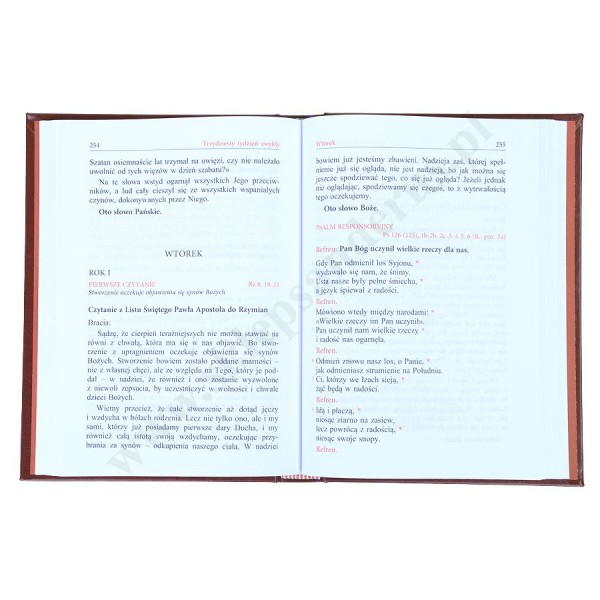 254 Trzydziesty tydzień zwykły
Szatan osiemnaście lat trzymał na uwięzi, czy nie należało
uwolnić od tych więzów w dzień szabatu?»
Na te słowa wstyd ogarnął wszystkich Jego przeciw-
ników, a lud cały cieszył się ze wszystkich wspaniałych
czynów, dokonywanych przez Niego.
Oto słowo Pańskie.
WTOREK
ROK I
PIERWSZE CZYTANIE Rz 8, 18-25
Stworzenie oczekuje objawienia się synów Bożych
Czytanie z Listu Świętego Pawła Apostoła do Rzymian
Bracia:
Sądzę, że cierpień teraźniejszych nie można stawiać na
równi z chwałą, która ma się w nas objawić. Bo stwo-
rzenie z upragnieniem oczekuje objawienia się synów
Bożych. Stworzenie bowiem zostało poddane marności –
nie z własnej chęci, ale ze względu na Tego, który je pod-
dał – w nadziei, że również i ono zostanie wyzwolone
z niewoli zepsucia, by uczestniczyć w wolności i chwale
dzieci Bożych.
Wiemy przecież, że całe stworzenie aż dotąd jęczy
i wzdycha w bólach rodzenia. Lecz nie tylko ono, ale i my
sami, którzy już posiadamy pierwsze dary Ducha, i my
również całą istotą swoją wzdychamy, oczekując przy-
brania za synów – odkupienia naszego ciała. W nadziei
Wtorek 255
bowiem już jesteśmy zbawieni. Nadzieja zaś, której speł-
nienie już się ogląda, nie jest nadzieją, bo jak można się
jeszcze spodziewać tego, co się już ogląda? Jeżeli jednak
nie oglądając, spodziewamy się czegoś, to z wytrwałością
tego oczekujemy.
Oto słowo Boże.
PSALM RESPONSORYJNY
Ps 126 (125), 1b-2b. 2c-3. 4-5. 6 (R.: por. 3a)
Refren: Pan Bóg uczynił wielkie rzeczy dla nas.
Gdy Pan odmienił los Syjonu, *
wydawało się nam, że śnimy.
Usta nasze były pełne śmiechu, *
a język śpiewał z radości.
Refren.
Mówiono wtedy między narodami: *
«Wielkie rzeczy im Pan uczynił».
Pan uczynił nam wielkie rzeczy *
i radość nas ogarnęła.
Refren.
Odmień znowu nasz los, o Panie, *
jak odmieniasz strumienie na Południu.
Ci, którzy we łzach sieją, *
żąć będą w radości.
Refren.
Idą i płaczą, *
niosąc ziarno na zasiew,
lecz powrócą z radością, *
niosąc swoje snopy.
Refren.